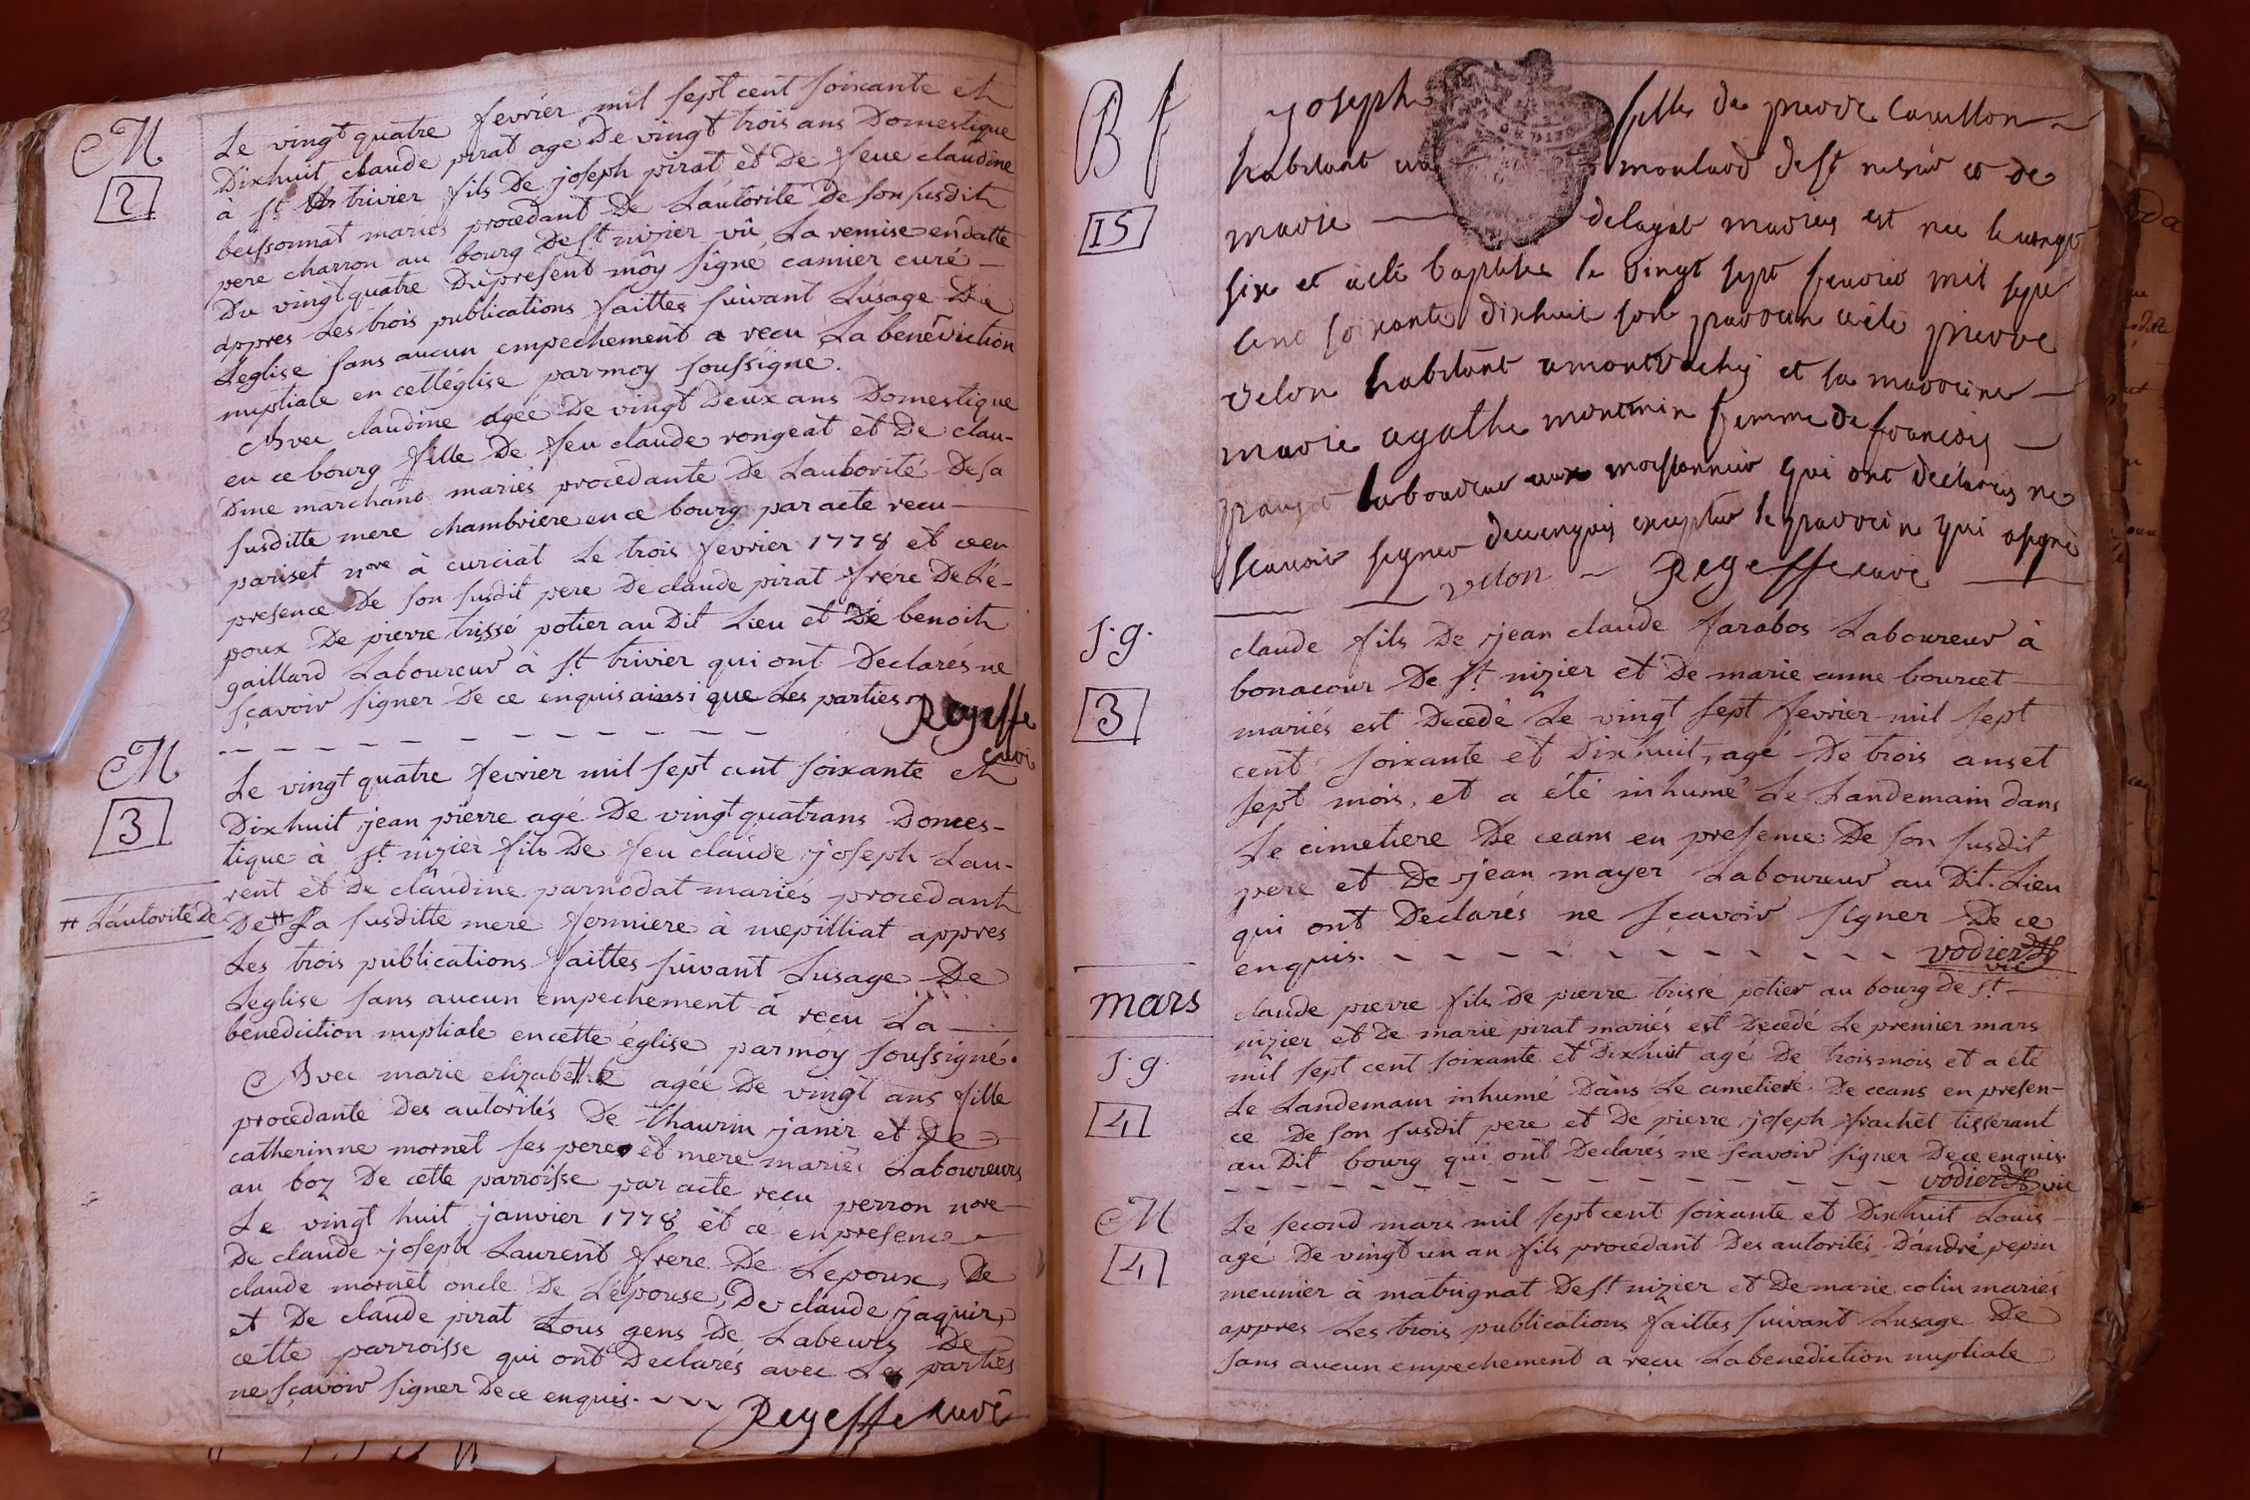 M
2
Le vingt quatre fevrier mil sept cent soixante et
Dixhuit claude pirat agé De vingt trois ans Domestique
à st trivier fils De joseph pirat et De feue claudine
beissonnat mariés procedant De L'autorité De son susdit
pere charron au bourg De st nizier vû La remise en datte
Du vingt quatre Du present môy signé camier curé
appres Les trois publications faittes suivant L'usage De
L'eglise sans aucun empechement a recu La benediction
nuptiale en cett église par moy soussigné.
Avec claudine agée De vingt Deux ans Domestique
en ce bourg fille De feu claude rongeat et De clau-
Dine marchand mariés procedante De L'authorité De sa
susditte mere chambriere en ce bourg par acte recu
pariset nore à curciat Le trois fevrier 1778 et ce en
presence De son susdit pere De claude pirat frere De L'é-
poux De pierre trissé potier au Dit Lieu et De benoit
gaillard Laboureur à st trivier qui ont Declarés ne
sçavoir signer De ce enquis ainsi que Les parties Regeffe
curé
M
3
Le vingt quatre fevrier mil sept cent soixante et
Dixhuit jean pierre agé De vingt quatrans Domes-
tique à st nizier fils De feu claude joseph Lau-
rent et De claudine parnodat mariés procedant
# L'autorité De
De # sa susditte mere fermiere à mepilliat appres
Les trois publications faittes suivant L'usage De
L'eglise sans aucun empechement à reçu La
benediction nuptiale en cette église par moy soussigné.
Avec marie elizabethe agée De vingt ans fille
procedante Des autorités De thaurin janin et De
catherinne mornet ses pere et mere mariés Laboureurs
au boz De cette parroisse par acte reçu perron nore
Le vingt huit janvier 1778 et ce en presence
De claude joseph Laurent frere De L'epoux, De
claude mornet oncle De L'épouse, De claude jaquir,
et De claude pirat tous gens De Labeurs De
cette parroisse qui ont Declarés avec Les parties
ne sçavoir signer De ce enquis. Regeffe curé
B f
15
joseph fille de pierre Cavillon
habitant au moulard de st nizier et de
marie delayat mariés est nee le vingt
six et aété baptisée le vingt sept fevrier mil sept
Cent soixante dixhuit son parrain aété pierre
velon habitant a montrachy et sa marraine
marie agathe montmin femme de françois
laboureur aux qui ont déclarés ne
scavoir signer de ce enquis excepter le parrain qui asigné
velon Regeffe curé
s.g.
3
claude fils De jean claude farabos Laboureur à
bonacour De st nizier et De marie anne bourcet
mariés est Decedé Le vingt sept fevrier mil sept
cent soixante et Dixhuit, agé De trois ans et
sept mois, et a été inhumé Le Landemain dans
Le cimetiere De ceans en presence De son susdit
pere et De jean mayer Laboureur au Dit Lieu
qui ont Declarés ne sçavoir signer De ce
enquis. vodier vic
mars
s.g.
4
claude pierre fils De pierre trissé potier au bourg de st
nizier et De marie pirat mariés est Decedé Le premier mars
mil sept cent soixante et Dixhuit agé De trois mois et a été
Le Landemain inhumé Dans Le cimetiere De ceans en presen-
ce De son susdit pere et De pierre joseph frachet tisserant
au Dit bourg qui ont Declarés ne scavoir signer De ce enquis.
vodier vic
M
4
Le second mars mil sept cent soixante et Dixhuit Louis
agé De vingt un an fils procedant Des autorités D'andré pepin
meunier à matrignat De st nizier et De marie colin mariés
appres Les trois publications faittes suivant L'usage De
sans aucun empechement a reçu La benediction nuptiale